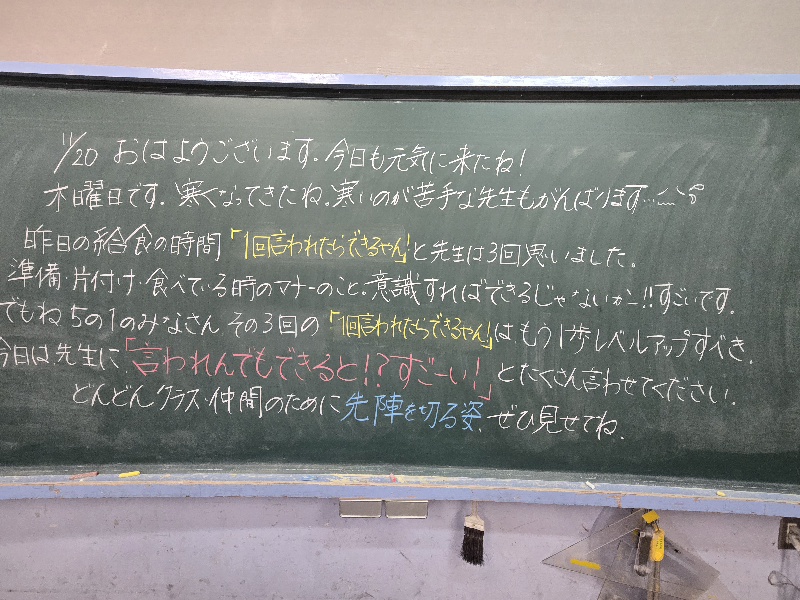 11/20 おはようございます。今日も元気に来たね!
木曜日です。寒くなってきたね。寒いのが苦手な先生もがんばります…
昨日の給食の時間「1回言われたらできるやん!」と先生は3回思いました。
準備・片付け・食べている時のマナーのこと。意識すればできるじゃないかー!!すごいです。
でもね 5の1のみなさん その3回の「1回言われたらできるやん」はもう1歩レベルアップすべき。
今日は先生に「言われんでもできると!?すごーい!」とたくさん言わせてください。
どんどんクラス・仲間のために先陣を切る姿、ぜひ見せてね。